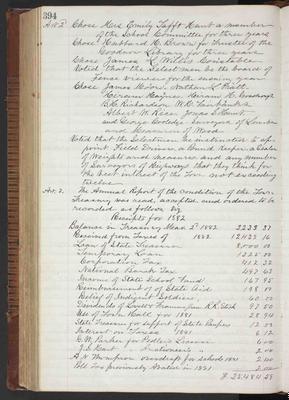 394
Art. 2. Chose Mrs Emily Tafft Hunt a member
of the School Committee for three years
Chose Hubbard H. Brown for Trustee of the
Goodnow Library for three years
Chose James L. Willis Constable.
Voted that the Selectmen be its board of
Fence Viewers for the ensuing year
Chose James Moore. Nathan L. Pratt.
Hiram Haynes, Hiram H. Goodnough
B.H. Richardson W.R. Fairbanks
Albert W. Rice. Jonas S Hunt
and George Surveyors of Lumber
and Measurers of Wood
Voted that the Selectmen be instructed to ap-
point Field Drivers, a Pound Keeper, a Sealer
of Weights and Measures and any number
of Surveyors of Highways that they think for
the best interest of the Town not exceeding
twelve
Art. 3. The Annual Report of the condition of the Town
Treasury was read, accepted and ordered to be
recorded as follows, viz
Receipts for 1882
Balance in Treasury Mar. 1st 1882 2238 37
Received from Taxes of 1882.
Loan of State Treasurer 8,000 00
Temporary Loan
Corporation Tax 412 32
National Bank Tax
Income of State School Fund 167 95
Reimbursement of State Aid 188 00
Relief of Indigent Soldiers
Dividends of Lowell & Framingham R.R. Stock
Use of Town Hall for 1881 28 94
State Treasurer for support of State Paupers
Interest on Taxes 1881
C.W. Parker for Pedlers License 4 00
J.S. Hunt " Auctioneer's " 2 00
A N Thompson overdraft for schools 1881
Poll Tax previously abated in 1881 2 00